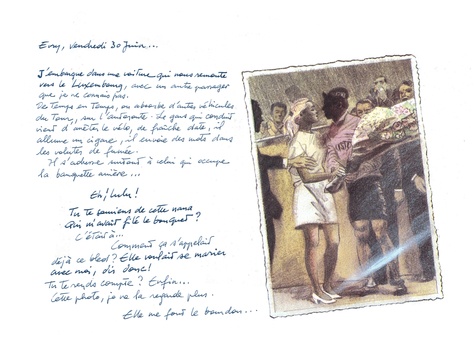 Evry, vendredi 30 Juin...
J'embarque dans une voiture qui nous remonte
vers le Luxembourg, avec un autre passager
que je ne connais pas.
De temps en temps, on absorbe d'autres véhicules
du Tour, sur l'autoroute. Le gars qui conduit
vient d'arrêter le vélo, de fraîche date, il
allume un cigare, il envoie des mots dans
les volutes de fumée.
Il s'adresse surtout à celui qui occupe
la banquette arrière...
Eh, Lulu!
Tu te souviens de cette nana
qui m'avait filé le bouquet?
C'était à...
Comment ça s'appelait
déjà ce bled? Elle voulait se marier
avec moi, dis donc!
Tu te rends compte? Enfin...
Cette photo, je va la regarde plus.
Elle me fout le bourdon...